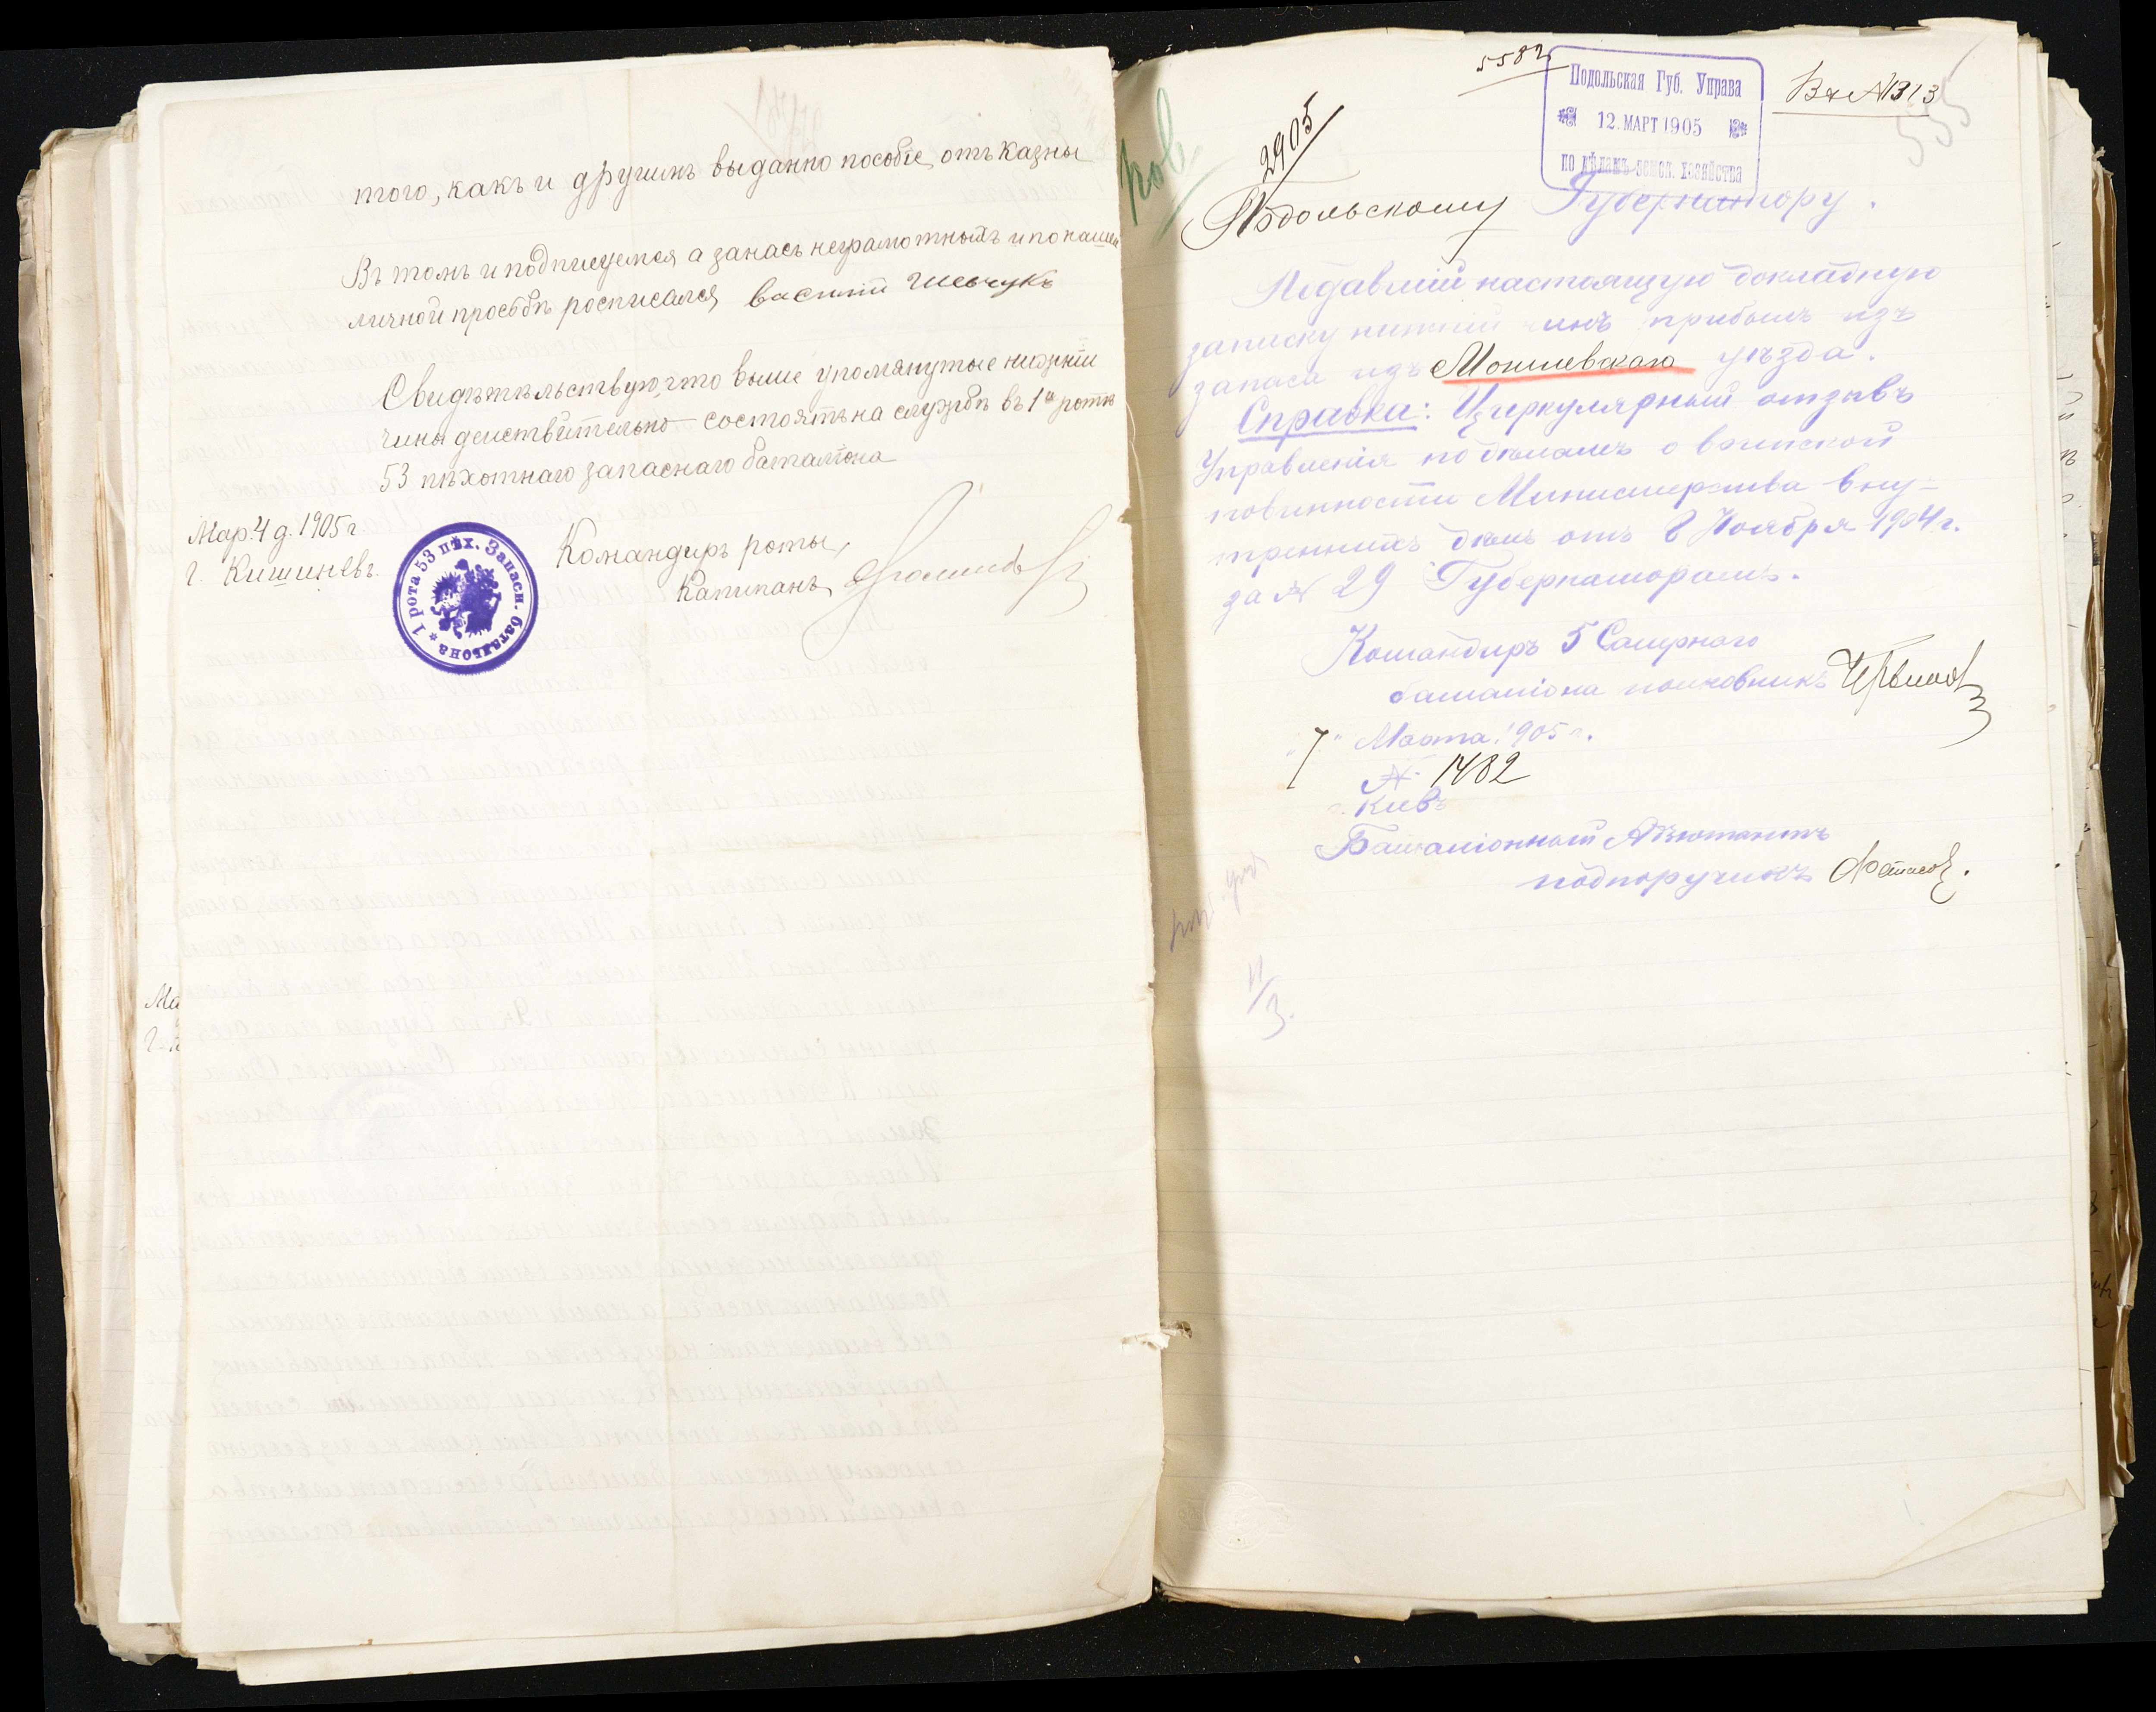 того, какъ и другимъ выданно пособіе отъ казны
Въ томъ и подписуемся а занасъ неграмотныхъ и по нашей
личной просьбѣ росписался Василій Шевчукъ
Свидѣтельствую, что выше упомянутые нижніи
чины действительно состоятъ на службѣ въ 1й ротѣ
53 пѣхотнаго запаснаго баталіона
Мар. 4 д. 1905 г.
г. Кишиневъ.
Командиръ роты,
Капитанъ
* 1 рота 53 пѣх. Запасн. баталіона
5582
Подольская Губ. Управа
12. МАРТ 1905
по дѣламъ земск. хозяйства
Вх № 1313
555
2905
Подольскому Губернатору.
Подавшій настоящую докладную
записку нижній чинъ прибылъ изъ
запаса изъ Могилевскаго уѣзда.
Справка: Циркулярный отзывъ
Управленія по дѣламъ о воинской
повинности Министерства Вну-
треннихъ дѣлъ отъ 8 Ноября 1904 г.
за № 29 Губернаторамъ.
Командиръ 5 Сапернаго
баталіона полковникъ
"7" Марта 1905 г.
№ 1482
г. Кіевъ
Баталіонный Адъютантъ
подпоручикъ
11/3.